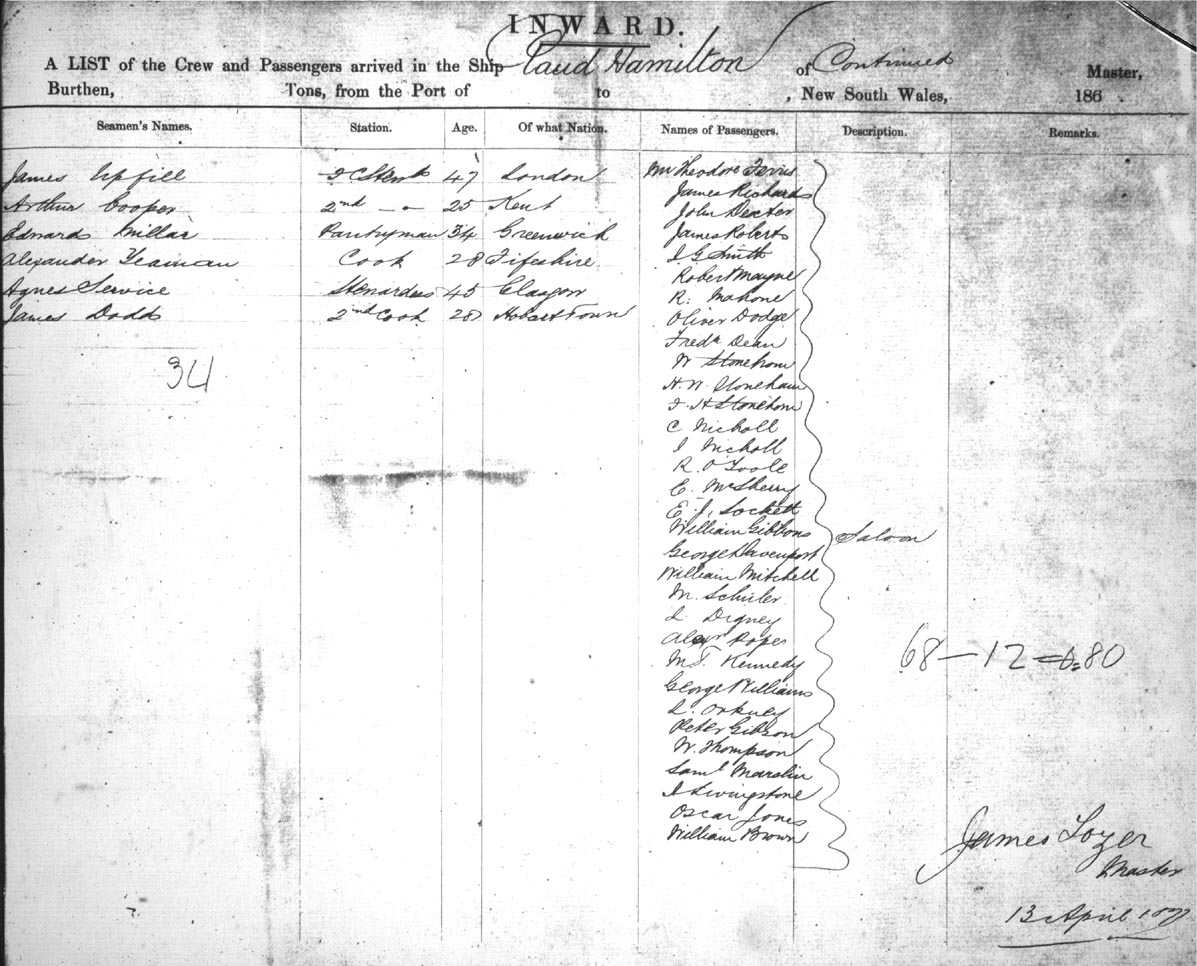 INWARD.
A LIST of the Crew and Passengers arrived in the Ship Claud Hamilton of Continued Master,
Burthen, Tons, from the Port of to , New South Wales, 186 .
Seamen's Names. Station. Age. Of what Nation. Names of Passengers. Description. Remarks.
James Upfill 47 London
Arthur Cooper 2nd — 25 Kent
Edward Millar Pantryman 34 Greenwich
Alexander Yeaman Cook 28 Fifeshire
Agnes Service Stewardess 45 Glasgow
James Dodd 2nd Cook 28 Hobart Town
34
Mr Theodore Ferris
James Richards
John Dexter
James Roberts
J G Smith
Robert Mayne
R. Mahone
Oliver Dodge
Fredk Dean
W Stoneham
H. W. Stoneham
H Stoneham
C Nicholl
J Nicholl
R. O'Toole
C. McSherry
E. J. Lockett
William Gibbons
Saloon
George Davenport
William Mitchell
M. Schuler
Digney
Alexr Pope
M. Kennedy
George Williams
Orkney
Peter Gibson
W. Thompson
Saml
Livingstone
Oscar Jones
William Brown
68 — 12 = 80
James Lozer
Master
13 April